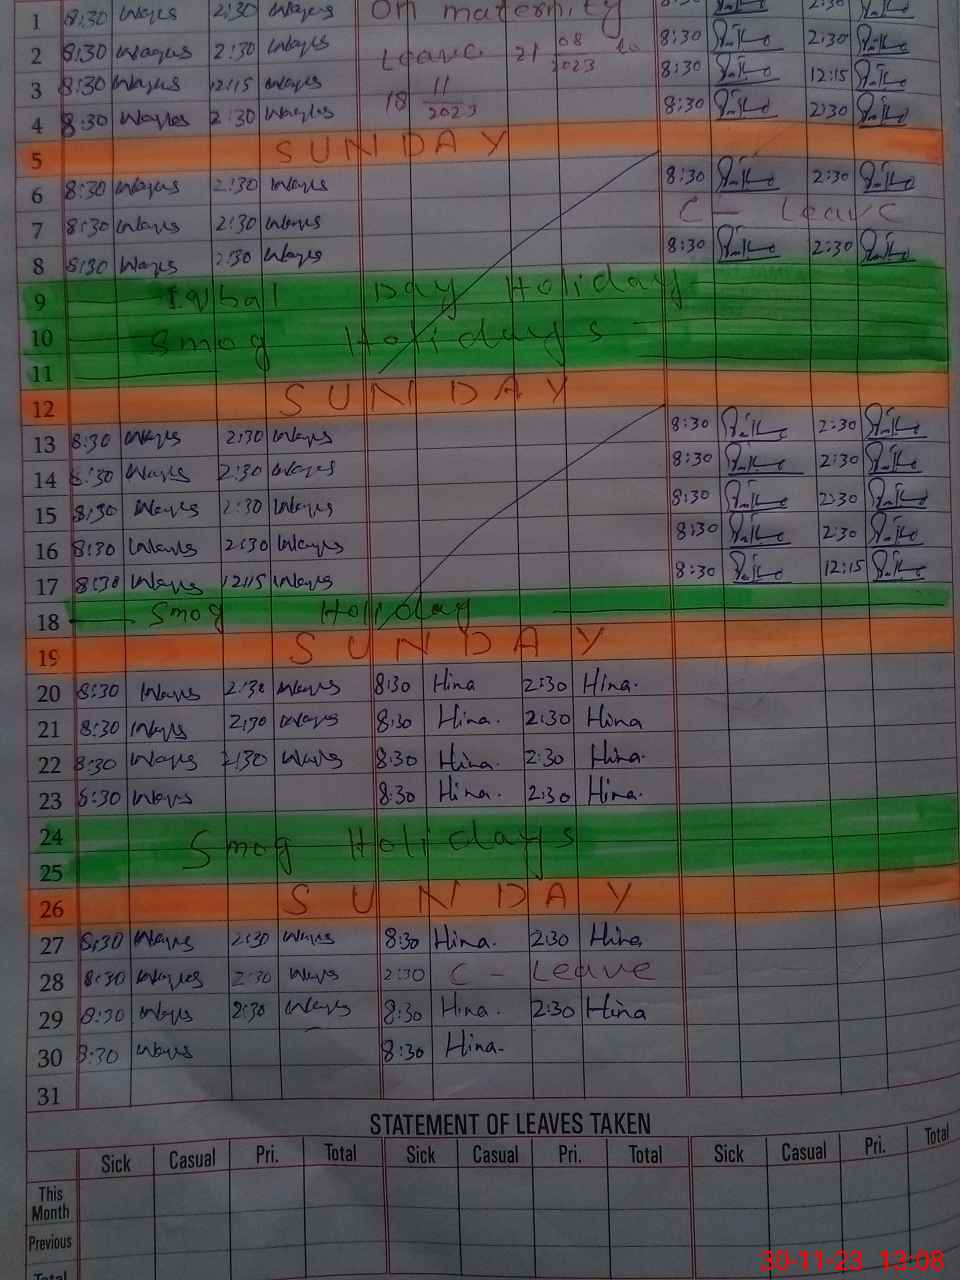 1 8:30 Wayes 2:30 Wayes On maternity 8:30 2:30
2 8:30 Wayes 2:30 Wayes Leave 21 08 2023 to 8:30 2:30
3 8:30 Wayes 12:15 Wayes 18 11 2023 8:30 12:15
4 8:30 Wayes 2:30 Wayes 8:30 2:30
5 SUNDAY
6 8:30 Wayes 2:30 Wayes 8:30 2:30
7 8:30 Wayes 2:30 Wayes C - Leave
8 8:30 Wayes 2:30 Wayes 8:30 2:30
9 Iqbal Day Holiday
10 Smog Holidays
11
12 SUNDAY
13 8:30 Wayes 2:30 Wayes 8:30 2:30
14 8:30 Wayes 2:30 Wayes 8:30 2:30
15 8:30 Wayes 2:30 Wayes 8:30 2:30
16 8:30 Wayes 2:30 Wayes 8:30 2:30
17 8:30 Wayes 12:15 Wayes 8:30 12:15
18 Smog Holiday
19 SUNDAY
20 8:30 Wayes 2:30 Wayes 8:30 Hina 2:30 Hina.
21 8:30 Wayes 2:30 Wayes 8:30 Hina. 2:30 Hina
22 8:30 Wayes 2:30 Wayes 8:30 Hina. 2:30 Hina.
23 8:30 Wayes 8:30 Hina. 2:30 Hina.
24 Smog Holidays
25
26 SUNDAY
27 8:30 Wayes 2:30 Wayes 8:30 Hina. 2:30 Hina
28 8:30 Wayes 2:30 Wayes 2:30 C - Leave
29 8:30 Wayes 2:30 Wayes 8:30 Hina. 2:30 Hina
30 8:30 Wayes 8:30 Hina.
31
STATEMENT OF LEAVES TAKEN
Sick Casual Pri. Total Sick Casual Pri. Total Sick Casual Pri. Total
This Month
Previous
Total
30-11-23 13:08